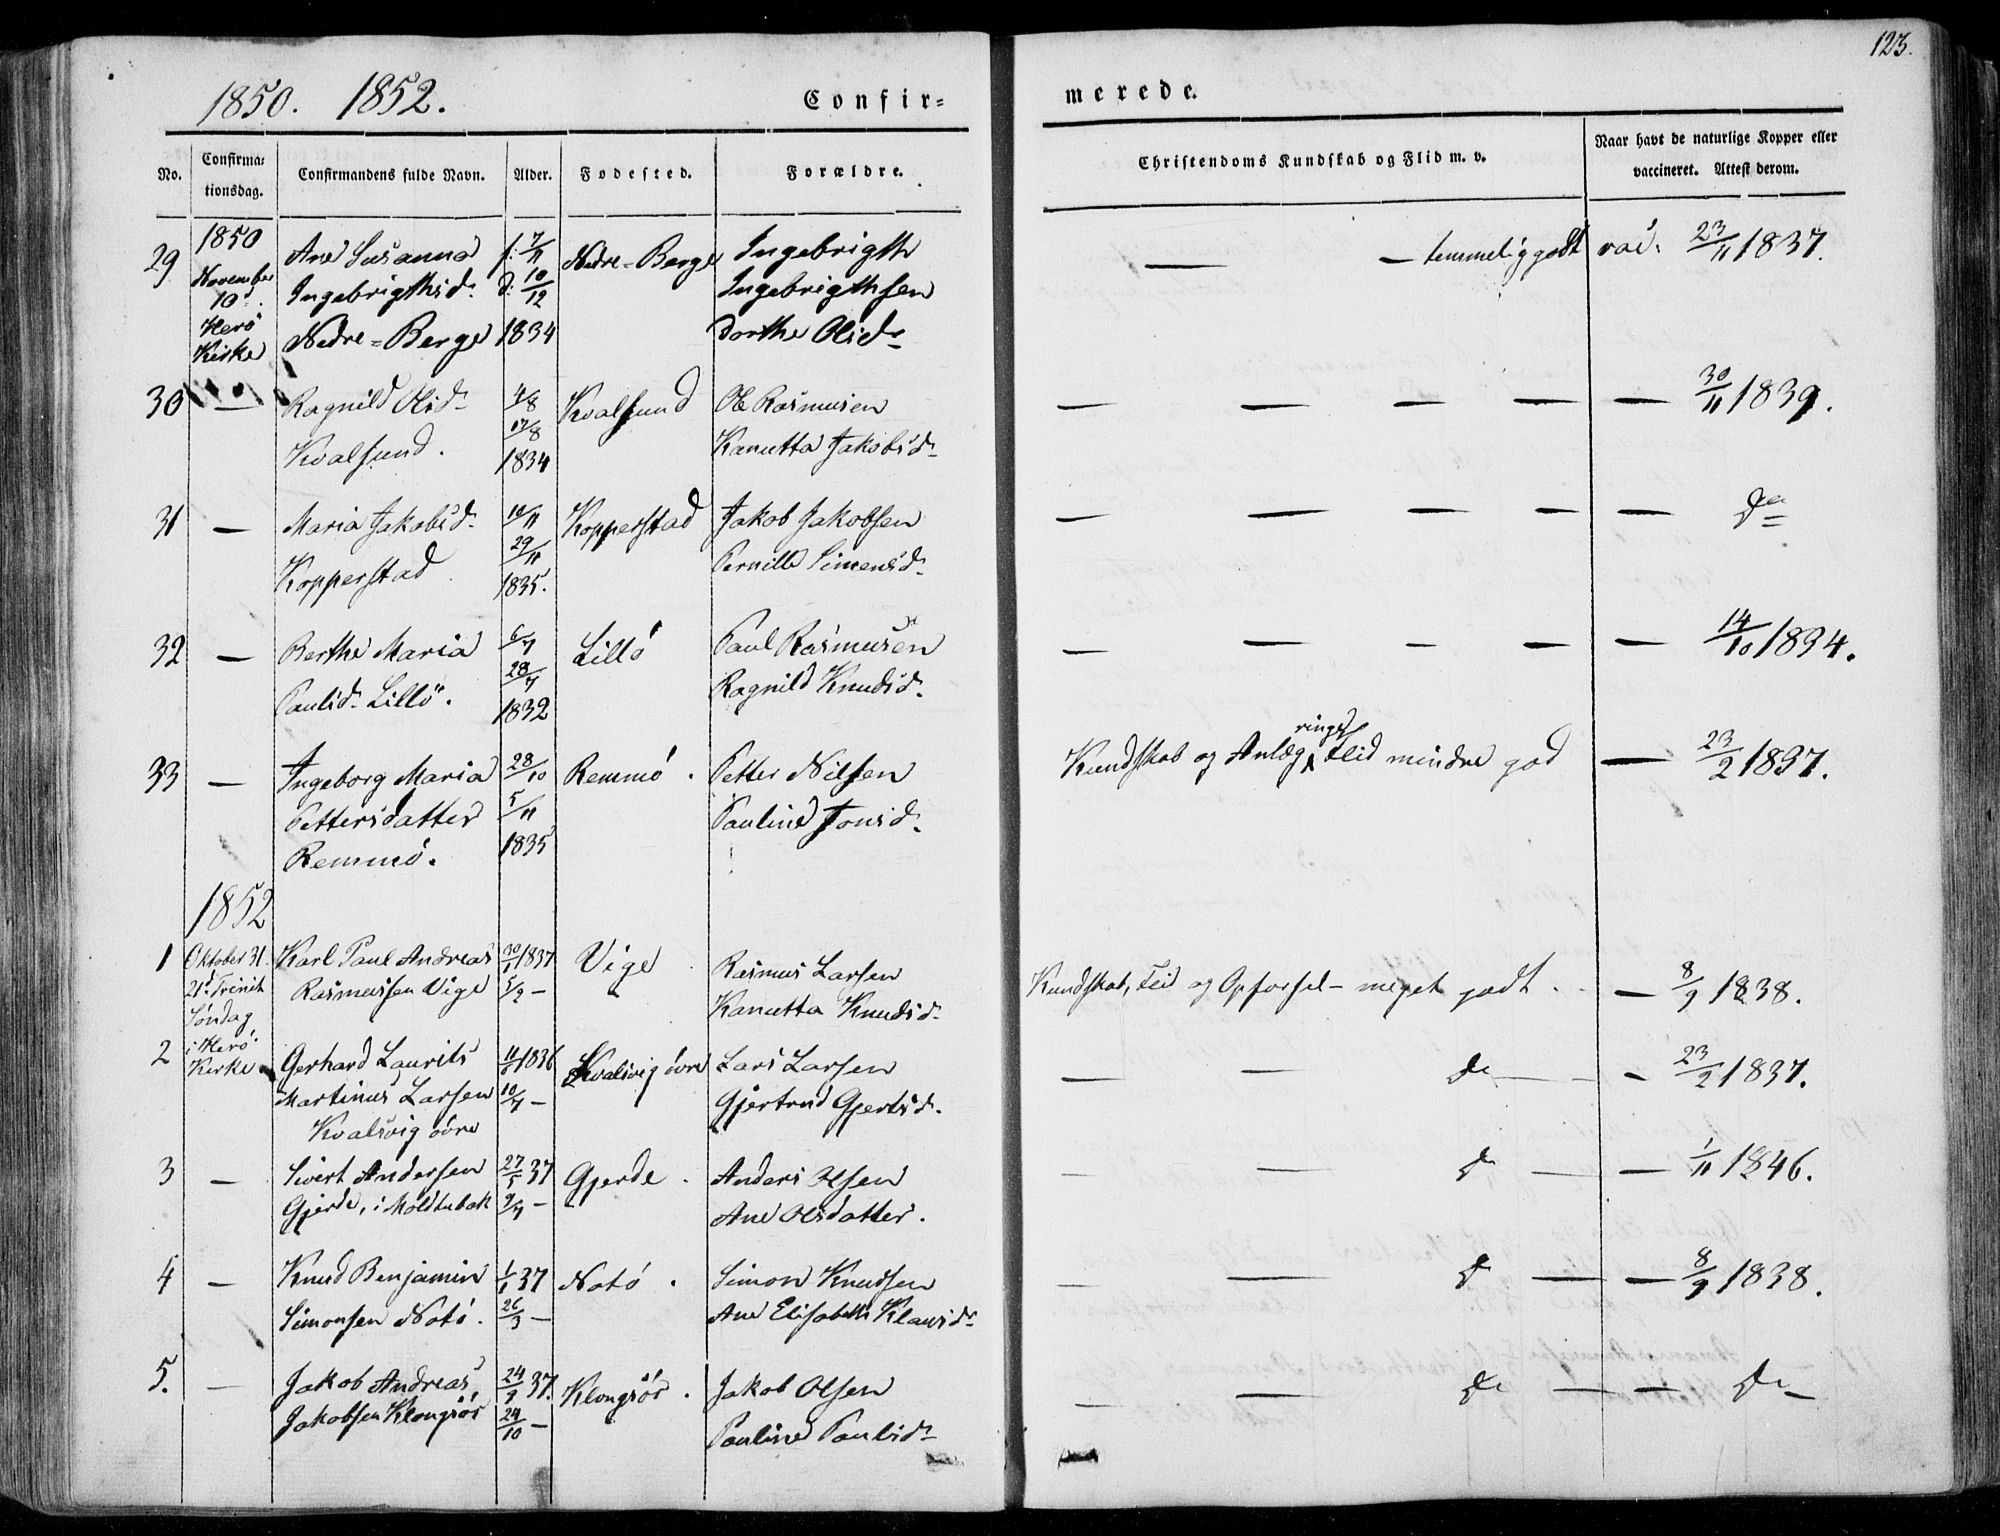 123.
1850. 1852.
Confir= merede.
No. Confirma: tionsdag. Confirmandens fulde Navn. Alder. Fødested. Forældre. Christendoms Kundskab og Flid m. v. Naar havt de naturlige Kopper eller vaccineret. Attest derom.
29 1850 Ane Susanna f: 7/11 Nedre=Berge Ingebrigth — — temmelig godt vac: 23/11 1837.
November Ingebrigthsd. d: 10/12 Ingebrigthsen
10d. Nedre=Berge 1834 Dorthe Olsd.
Herö
Kirke
30 — Ragnild Olsd. 4/8 Kvalsund Ole Rasmusen — — — — — 30/11 1839.
Kvalsund. 17/8 Kanutta Jakobsd.
1834
31 — Maria Jakobsd. 10/11 Kopperstad Jakob Jakobsen — — — — — Do
Kopperstad 29/11 Pernille Simensd.
1835.
32 — Berthe Maria 6/7 Lillö Paul Rasmusen — — — — — 14/10 1834.
Paulsd. Lillö. 28/7 Ragnild Knudsd.
1832
33 — Ingeborg Maria 28/10 Remmö. Petter Nilsen Kundskab og Anlæg ringe, Flid mindre god — 23/2 1837.
Pettersdatter 5/11 Pauline Jonsd.
Remmö. 1835
1852
1 Oktober 31. Karl Paul Andreas 30/1 1837 Vige Rasmus Larsen Kundskab, Flid og Opförsel – meget godt. — 8/9 1838.
21d. Trinit Rasmussen Vige 5/2 — Kanutta Knudsd.
Söndag
i Herö
2 Kirke Gerhard Laurits 11/6 1836 Kvalsvig övre Lars Larsen — — Do — — 23/2 1837.
Martinus Larsen 10/7 — Gjertrud Gjertsd.
Kvalsvig övre
3 — Sivert Andersen 27/5 37 Gjerde. Anders Olsen — — Do — — 1/11 1846.
Gjerde, i Moldtubak 9/7 — Ane Olsdatter.
4 — Knud Benjamin 1/1 37 Notö. Simon Knudsen — — Do — — 8/9 1838.
Simonsen Notö. 26/3 — Ane Elisabeth Klausd.
5. — Jakob Andreas 24/9 37. Klongsör. Jakob Olsen — — Do — — Do
Jakobsen Klongsör 24/10 — Pauline Paulsd.